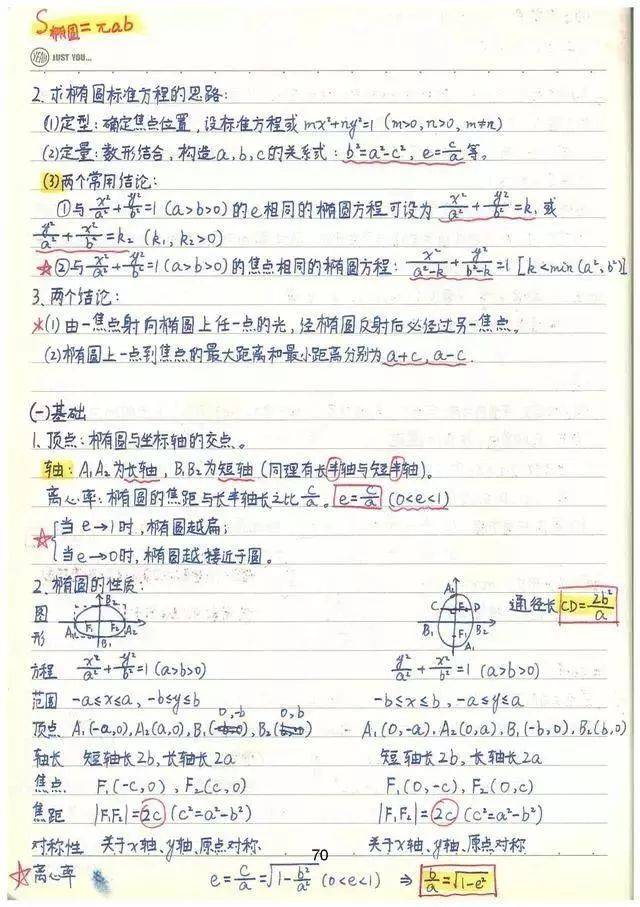 S椭圆=πab
YEAH JUST YOU...
2. 求椭圆标准方程的思路:
(1)定型:确定焦点位置,设标准方程或 mx²+ny²=1 (m>0, n>0, m≠n)
(2)定量:数形结合,构造a,b,c的关系式: b²=a²-c², e=c/a 等。
(3)两个常用结论:
①与 x²/a²+y²/b²=1 (a>b>0) 的e相同的椭圆方程可设为 x²/a²+y²/b²=k₁ 或
y²/a²+x²/b²=k₂ (k₁, k₂>0)
☆②与 x²/a²+y²/b²=1 (a>b>0) 的焦点相同的椭圆方程: x²/(a²-k)+y²/(b²-k)=1 [k<min(a²,b²)]
3. 两个结论:
☆(1)由一焦点射向椭圆上任一点的光,经椭圆反射后必经过另一焦点。
(2)椭圆上一点到焦点的最大距离和最小距离分别为 a+c, a-c.
(一)基础
1. 顶点:椭圆与坐标轴的交点。
轴: A₁A₂为长轴, B₁B₂为短轴 (同理有长半轴与短半轴)。
离心率:椭圆的焦距与长半轴长之比 c/a。 e=c/a (0<e<1)
☆ 当 e→1时,椭圆越扁;
当 e→0时,椭圆越接近于圆。
2. 椭圆的性质:
图形 A₁ A₂ B₁ B₂ F₁ F₂ A₂ C F₂ D B₁ B₂ F₁ A₁ 通径长 CD=2b²/a
方程 x²/a²+y²/b²=1 (a>b>0) y²/a²+x²/b²=1 (a>b>0)
范围 -a≤x≤a, -b≤y≤b -b≤x≤b, -a≤y≤a
顶点 A₁(-a,0), A₂(a,0), B₁(0,-b), B₂(0,b) A₁(0,-a), A₂(0,a), B₁(-b,0), B₂(b,0)
轴长 短轴长2b, 长轴长2a 短轴长2b, 长轴长2a
焦点 F₁(-c,0), F₂(c,0) F₁(0,-c), F₂(0,c)
焦距 |F₁F₂|=2c (c²=a²-b²) |F₁F₂|=2c (c²=a²-b²)
对称性 关于x轴、y轴、原点对称. 关于x轴、y轴、原点对称
70
☆离心率 e=c/a=√(1-b²/a²) (0<e<1) ⇒ b/a=√(1-e²)